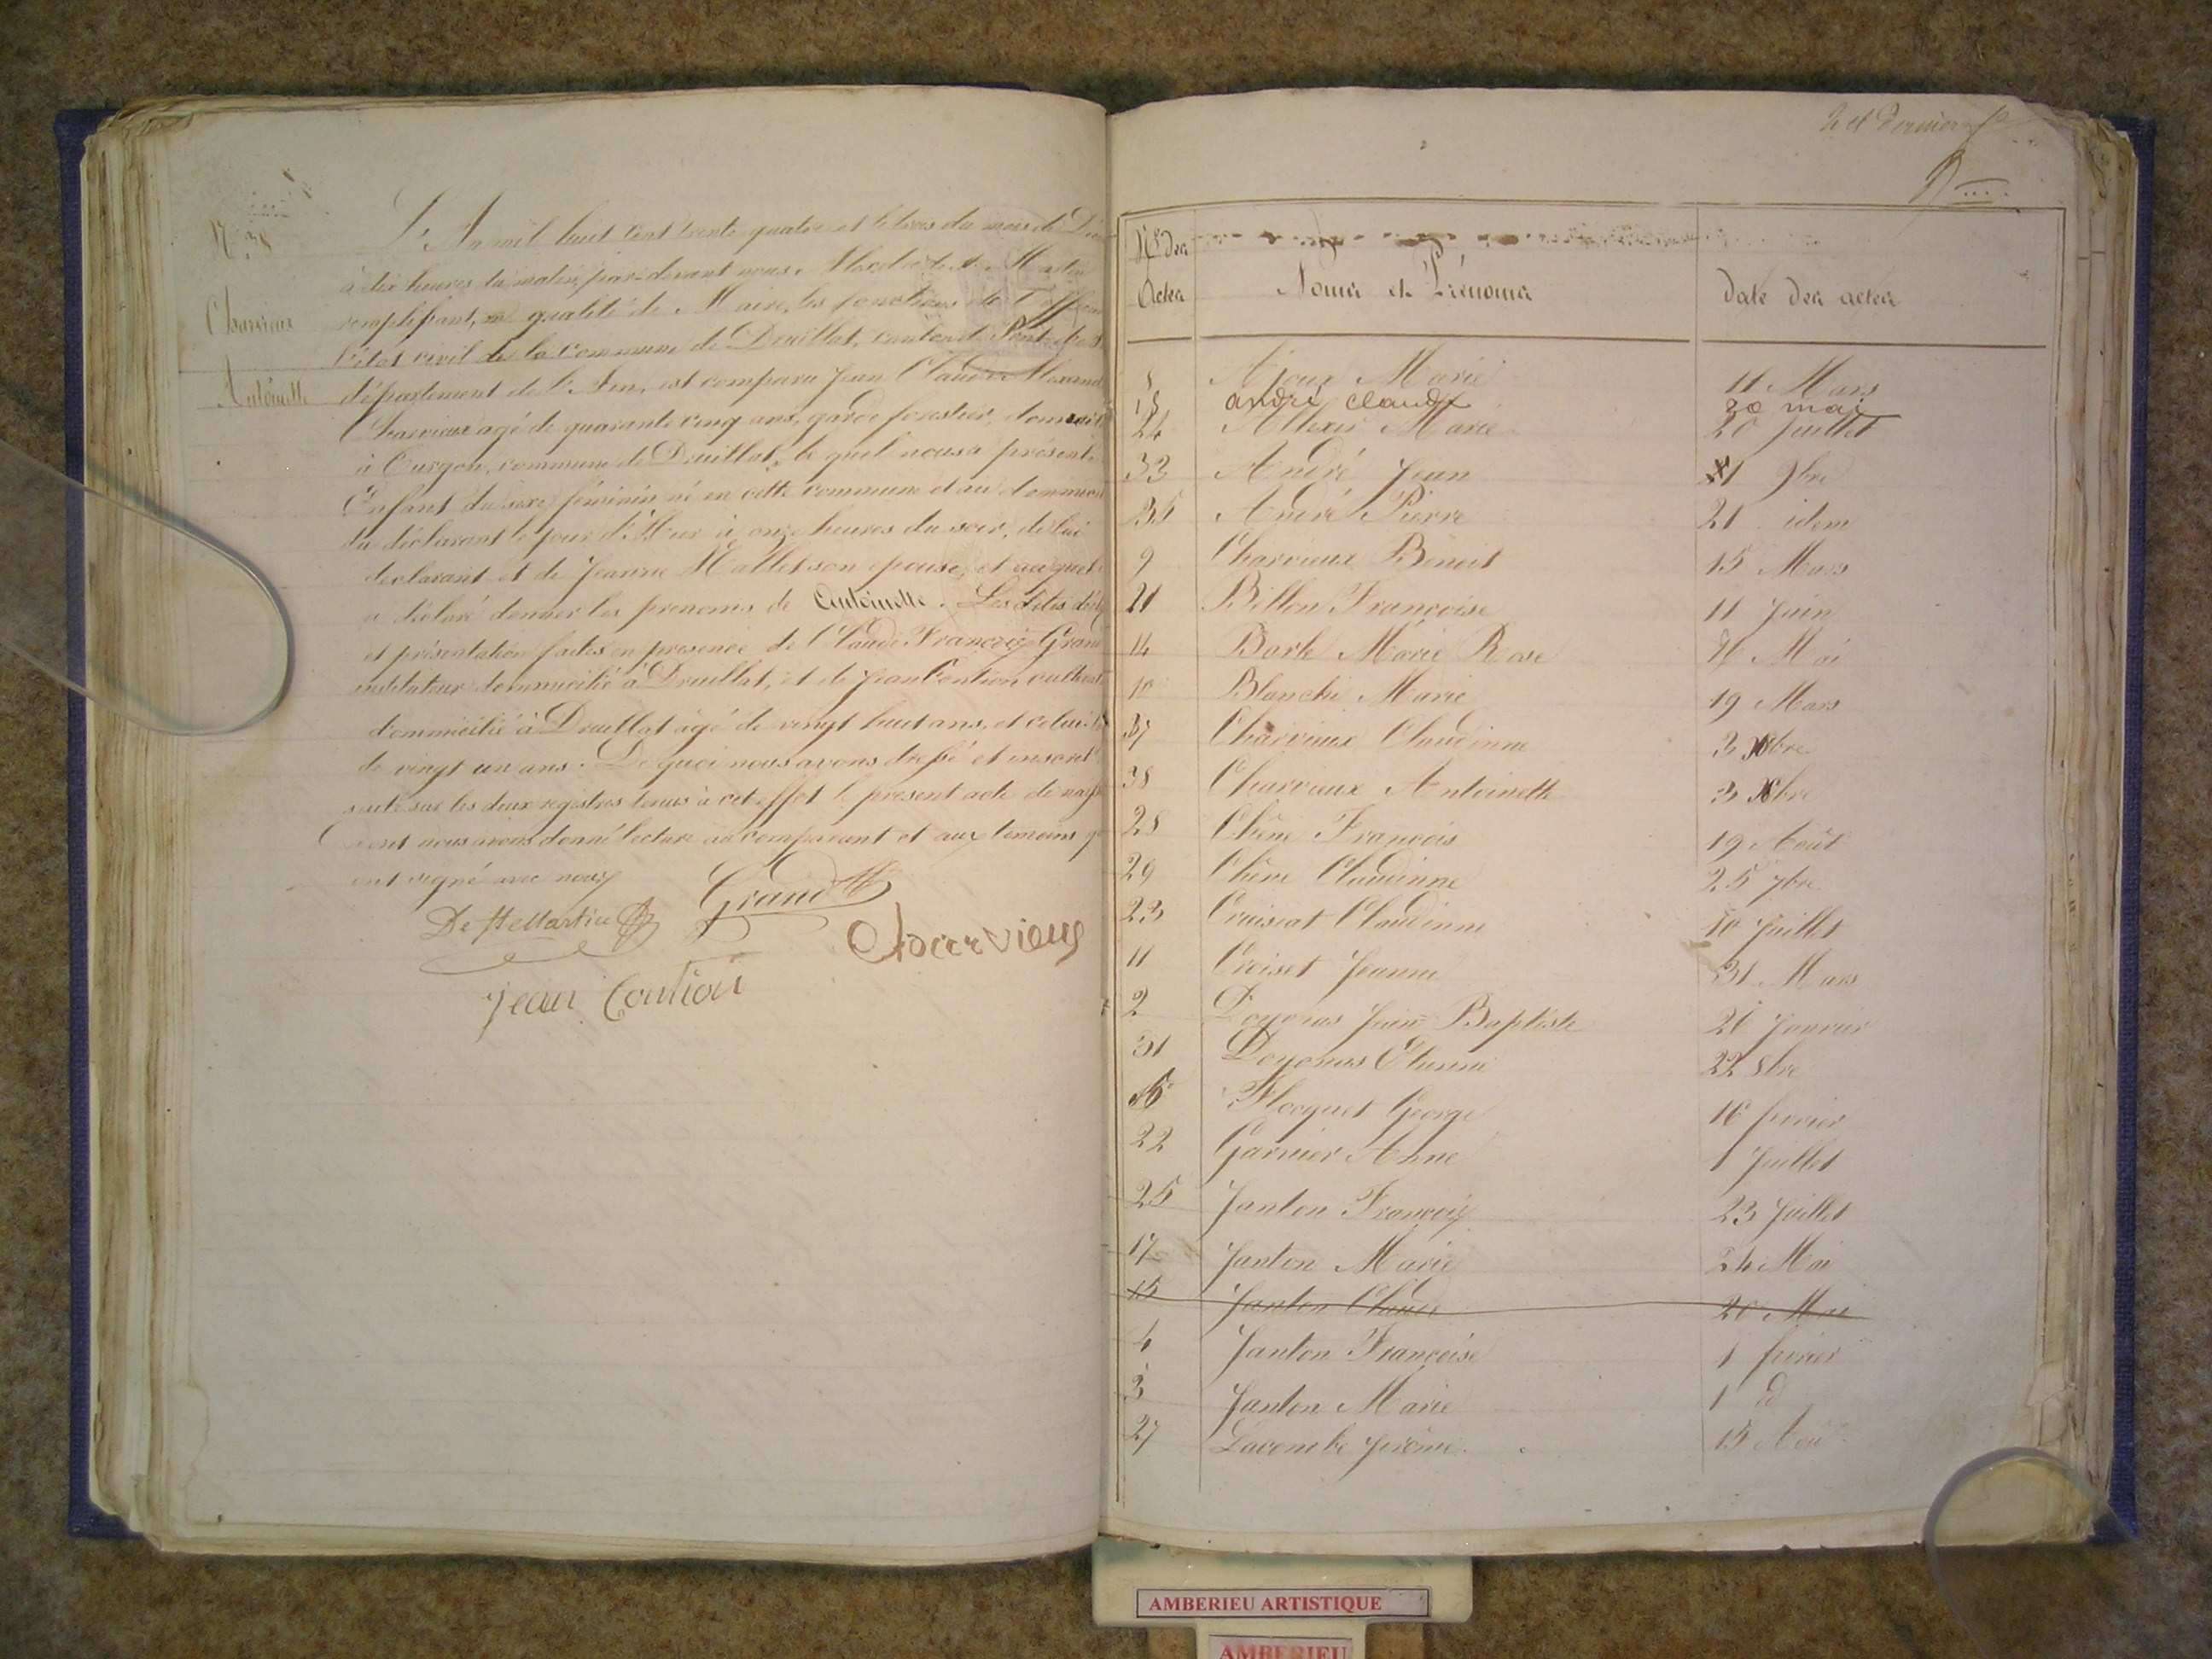 N° 38
Charvieux
Antoinette
L'An mil huit cent trente quatre et le trois du mois de
à dix heures du matin, par-devant nous, de Ste Martin
remplissant, en qualité de Maire, les fonctions de
l'état civil de la commune de Druillat, canton de Pont
département de l'Ain, est comparu Jean Claude
Charvieux agé de quarante cinq ans, garde forestier,
à commune de Druillat, le quel nous a présenté
Enfant du sexe féminin né en cette commune et au
du déclarant le jour d'Hier à onze heures du soir, de lui
declarant et de Jeanne son epouse, et
a déclaré donner les prenoms de Antoinette. Les dites
et présentation faites en presence de Claude François Grand
instituteur domicilié à Druillat, et de Jean Contion
domicilié à Druillat agé de vingt huit ans, et celui
de vingt un ans. De quoi nous avons dressé et inscrit
suite sur les deux registres tenus à cet effet le présent acte de
dont nous avons donné lecture au comparant et aux temoins
ont signé avec nous
De Ste Martin Grand
Charvieux
Jean Contion
2 et dernier
N° des
Actes
Noms et Prénoms
Date des actes
8 Ajoux Marie 11 Mars
18 andré claude 20 mai
24 Allexis Marie 20 Juillet
33 André Jean 1 9bre
35 André Pierre 21 idem
9 Charvieux Benoit 15 Mars
21 Billon Françoise 11 Juin
14 Marie Rose Mai
10 Blanche Marie 19 Mars
37 Charvieux Claudinne 3 Xbre
38 Charvieux Antoinette 3 Xbre
28 Chêne François 19 Août
29 Chêne Claudinne 25 7bre
23 Cruisat Claudinne 10 Juillet
11 Croiset Jeanne 31 Mars
2 Jean Baptiste Janvier
31 22 8bre
6 Flocquet George 16 fevrier
22 Garnier Anne 1 Juillet
25 Janton François 23 Juillet
17 Janton Marie 24 Mai
15 Janton Claude 20 Mai
4 Janton Françoise 1 fevrier
3 Janton Marie 1 d
27 Lacombe 15 Août
AMBERIEU ARTISTIQUE
AMBERIEU